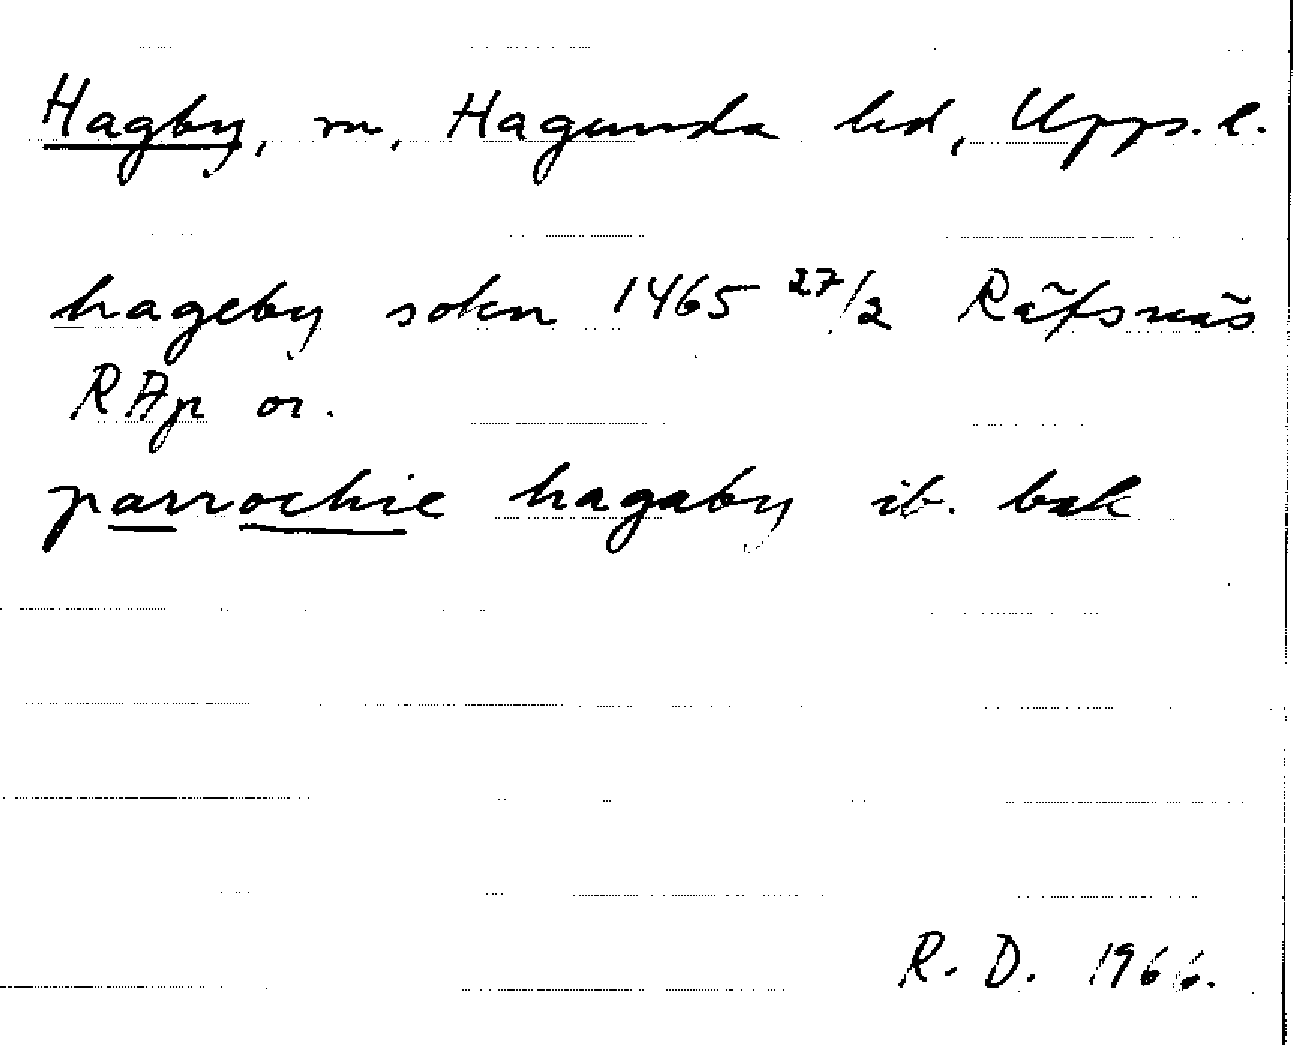 Hagby, sn, Hagunda hd, Upps. l.
hageby sokn 1465 27/2 Räfsnäs
RAp or.
parrochie hagaby ib. bak
R. D. 1966.